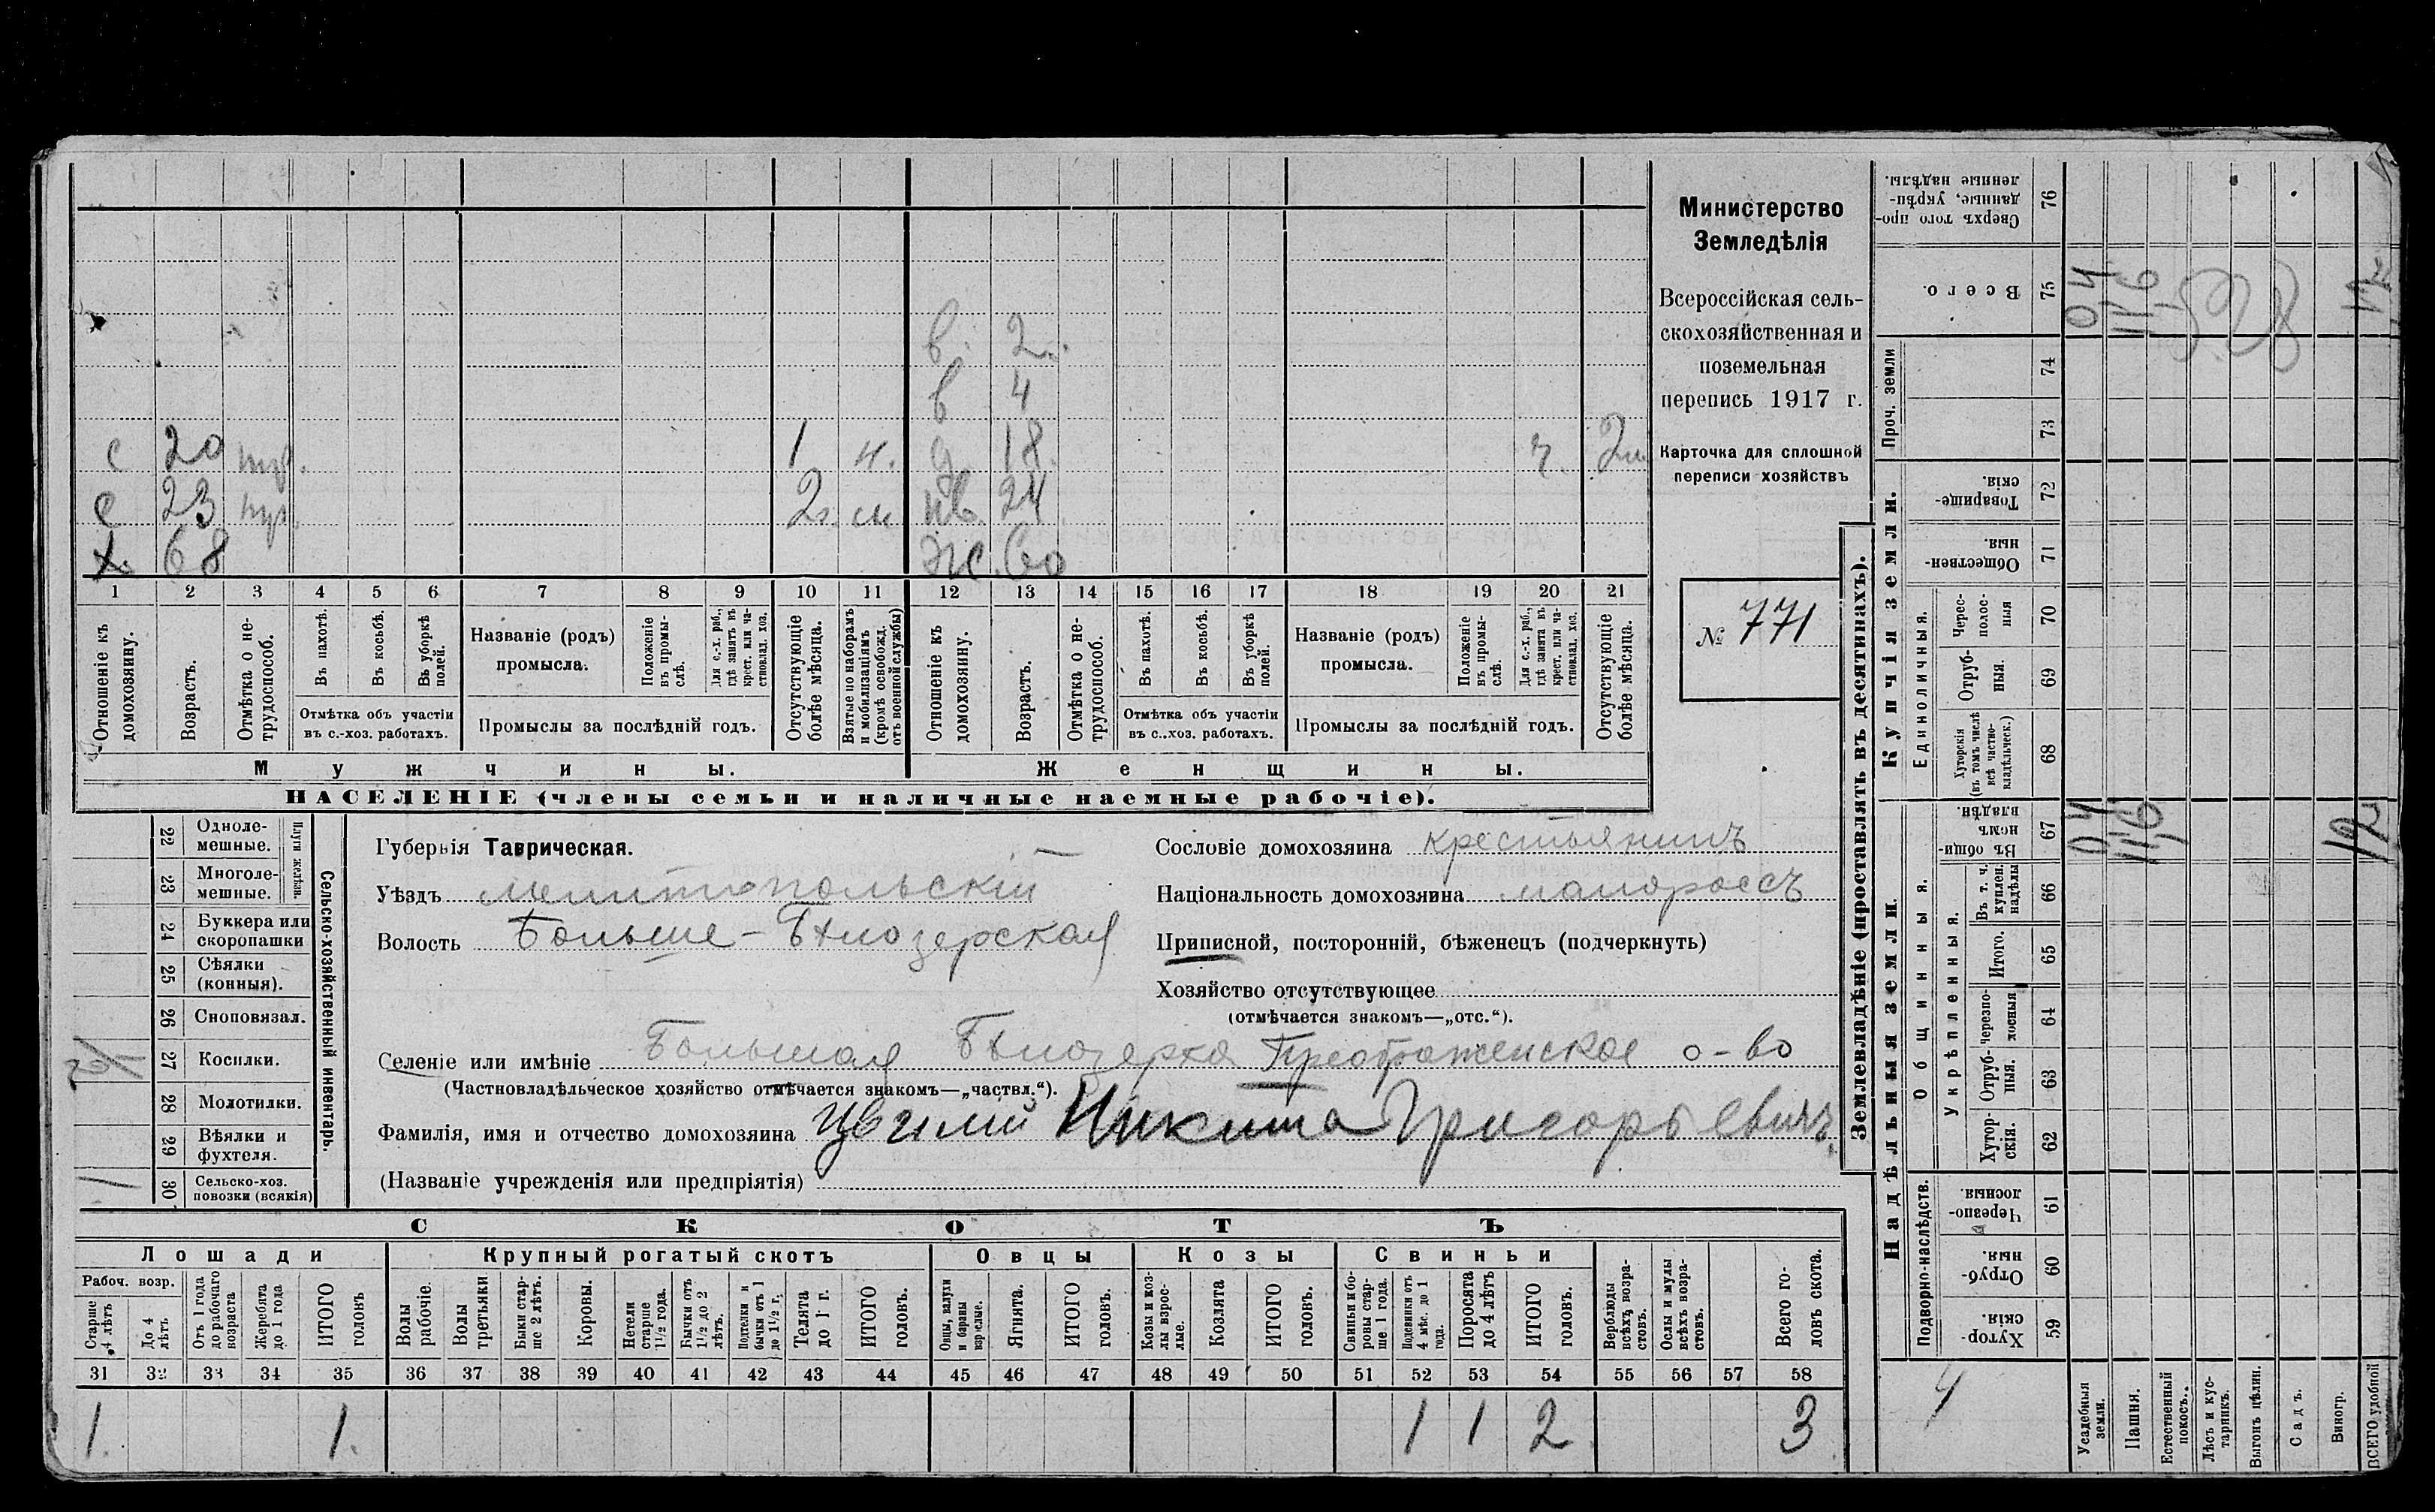 Министерство
Земледѣлія
Всероссійская сель-
скохозяйственная и
поземельная
перепись 1917 г.
Карточка для сплошной
переписи хозяйствъ
№ 771
в. 2
в 4
с 20 1 н. д 18. ч. 2м
с 23 2г. м нв. 24
х. 68 ж. 60
1 2 3 4 5 6 7 8 9 10 11 12 13 14 15 16 17 18 19 20 21
Отношеніе къ домохозяину.
Возрастъ.
Отмѣтка о не-трудоспособ.
Въ пахотѣ.
Въ косьбѣ.
Въ уборкѣ полей.
Отмѣтка объ участіи
въ с.-хоз. работахъ.
Названіе (родъ)
промысла.
Положеніе въ промы-слѣ.
Для с.-х. раб., гдѣ занятъ въ крест. или ча-стновлад. хоз.
Промыслы за послѣдній годъ.
Отсутствующіе болѣе мѣсяца.
Взятые по наборамъ и мобилизаціямъ (кромѣ освобожд. отъ военной службы)
Отношеніе къ домохозяину.
Возрастъ.
Отмѣтка о не-трудоспособ.
Въ пахотѣ.
Въ косьбѣ.
Въ уборкѣ полей.
Отмѣтка объ участіи
въ с..хоз. работахъ.
Названіе (родъ)
промысла.
Положеніе въ промы-слѣ.
Для с.-х. раб., гдѣ занята въ крест. или ча-стновлад. хоз.
Промыслы за послѣдній годъ.
Отсутствующіе болѣе мѣсяца.
Мужчины.
Женщины.
НАСЕЛЕНІЕ (члены семьи и наличные наемные рабочіе).
Сельско-хозяйственный инвентарь.
Плуги желѣзн.
22 Одноле-мешные.
23 Многоле-мешные.
24 Буккера или скоропашки
25 Сѣялки (конныя).
26 Сноповязал.
27 Косилки.
28 Молотилки.
29 Вѣялки и фухтеля.
30 Сельско-хоз. повозки (всякія)
1
Губернія Таврическая.
Уѣздъ Мелитопольскій
Волость Больше-Бѣлозерская
Селеніе или имѣніе Большая Бѣлозерка Преображенское о-во
(Частновладѣльческое хозяйство отмѣчается знакомъ—„частвл.“).
Фамилія, имя и отчество домохозяина Цвилій Никита Григорьевичъ
(Названіе учрежденія или предпріятія)
Сословіе домохозяина крестьянинъ
Національность домохозяина малороссъ
Приписной, посторонній, бѣженецъ (подчеркнуть)
Хозяйство отсутствующее
(отмѣчается знакомъ—„отс.“).
СКОТЪ
Лошади
Крупный рогатый скотъ
Овцы
Козы
Свиньи
Рабоч. возр.
Старше 4 лѣтъ
До 4 лѣтъ
Отъ 1 года до рабочаго возраста
Жеребята до 1 года
ИТОГО головъ
Волы рабочіе.
Волы третьяки
Быки стар-ше 2 лѣтъ.
Коровы.
Нетели старше 1½ года.
Бычки отъ 1½ до 2 лѣтъ.
Подтелки и бычки отъ 1 до 1½ г.
Телята до 1 г.
ИТОГО головъ.
Овцы, валухи и бараны взрослые.
Ягнята.
ИТОГО головъ.
Козы и коз-лы взрос-лые.
Козлята
ИТОГО головъ.
Свиньи и бо-ровы стар-ше 1 года.
Подсвинки отъ 4 мѣс. до 1 года.
Поросята до 4 лѣтъ
ИТОГО головъ.
Верблюды всѣхъ возра-стовъ.
Ослы и мулы всѣхъ возра-стовъ.
Всего го-ловъ скота.
31 32 33 34 35 36 37 38 39 40 41 42 43 44 45 46 47 48 49 50 51 52 53 54 55 56 57 58
1. 1. 1 1 2 3
Землевладѣніе (проставлять въ десятинахъ).
Надѣльныя земли.
Купчія земли.
Проч. земли
Подворно-наслѣдств.
Общинныя.
Укрѣпленныя.
Единоличныя.
Сверхъ того про-данные, укрѣп-ленные надѣлы. 76
Всего. 75
74
73
Товарище-скія. 72
Обществен-ныя. 71
Черес-полос-ныя 70
Отруб-ныя. 69
Хуторскія (въ томъ числѣ всѣ частно-владѣльческ.) 68
Въ общи-номъ владѣн. 67
Въ т. ч. куплен. надѣлы 66
Итого. 65
Черезпо-лосныя 64
Отруб-ныя. 63
Хутор-скія. 62
Черезпо-лосныя. 61
Отруб-ныя. 60
Хутор-скія. 59
04 116 12
04 116 12
4
Усадебныя земли.
Пашня.
Естественный покосъ.
Лѣсъ и кус-тарникъ.
Выгонъ цѣлин.
Садъ.
Виногр.
ВСЕГО удобной